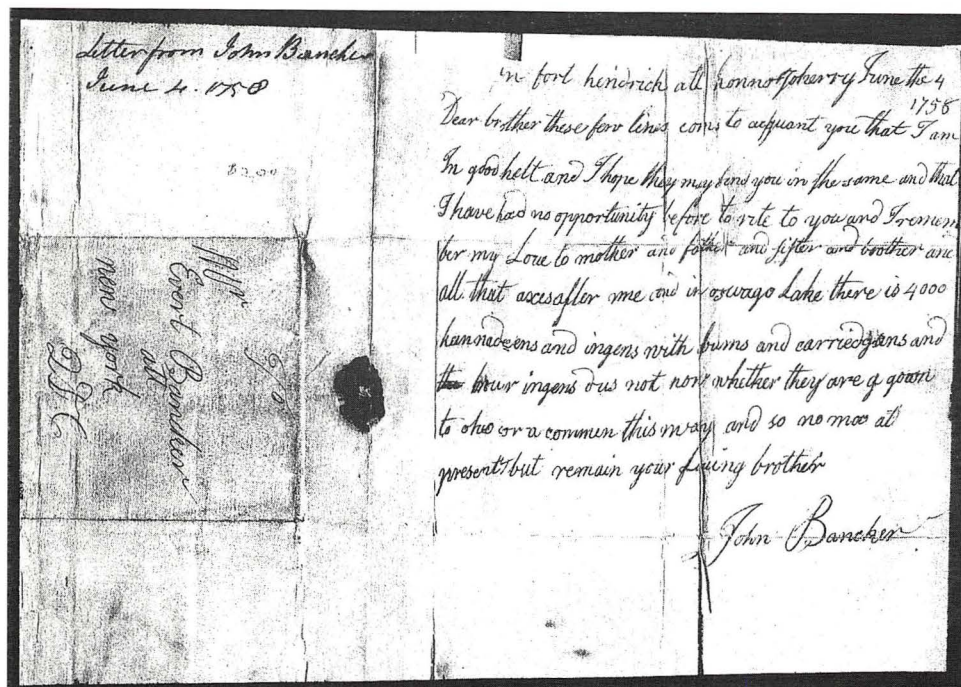 Letter from John Bancker
June 4. 1758
$200
To
Mr
Evert Bancker
att
new york
Q D C
in fort hindrich att konnosjoherry June the 4
1758
Dear brother these few lines coms to acquant you that I am
In good helt and I hope they may find you in the same and that
I have had no opportunity before to rite to you and I remem
ber my Love to mother and father and sister and brother and
all that axes after me and in oswago Lake there is 4000
kannadeens and ingens with bums and carriedgans and
our ingens dus not now whether they are a goown
to ohio or a commen this way and so no moo at
present but remain your living brother
John Bancker